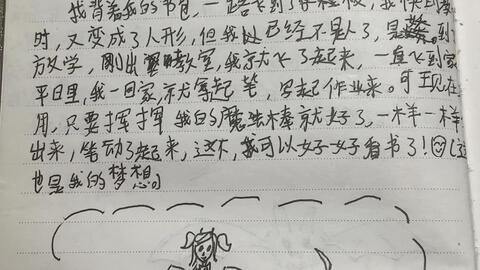 我背着我的书包，一路飞到了学校，我快到
时，又变成了人形，但我已经不是人了，是
方文学，刚出教室，我就飞了起来，一直飞到家
平日里，我一回家，就拿起笔，写起作业来。可现在
用，只要挥挥我的魔法棒就好了，一样一样
出来，笔动了起来，这不，我可以好好看书了！（这
也是我的梦想）